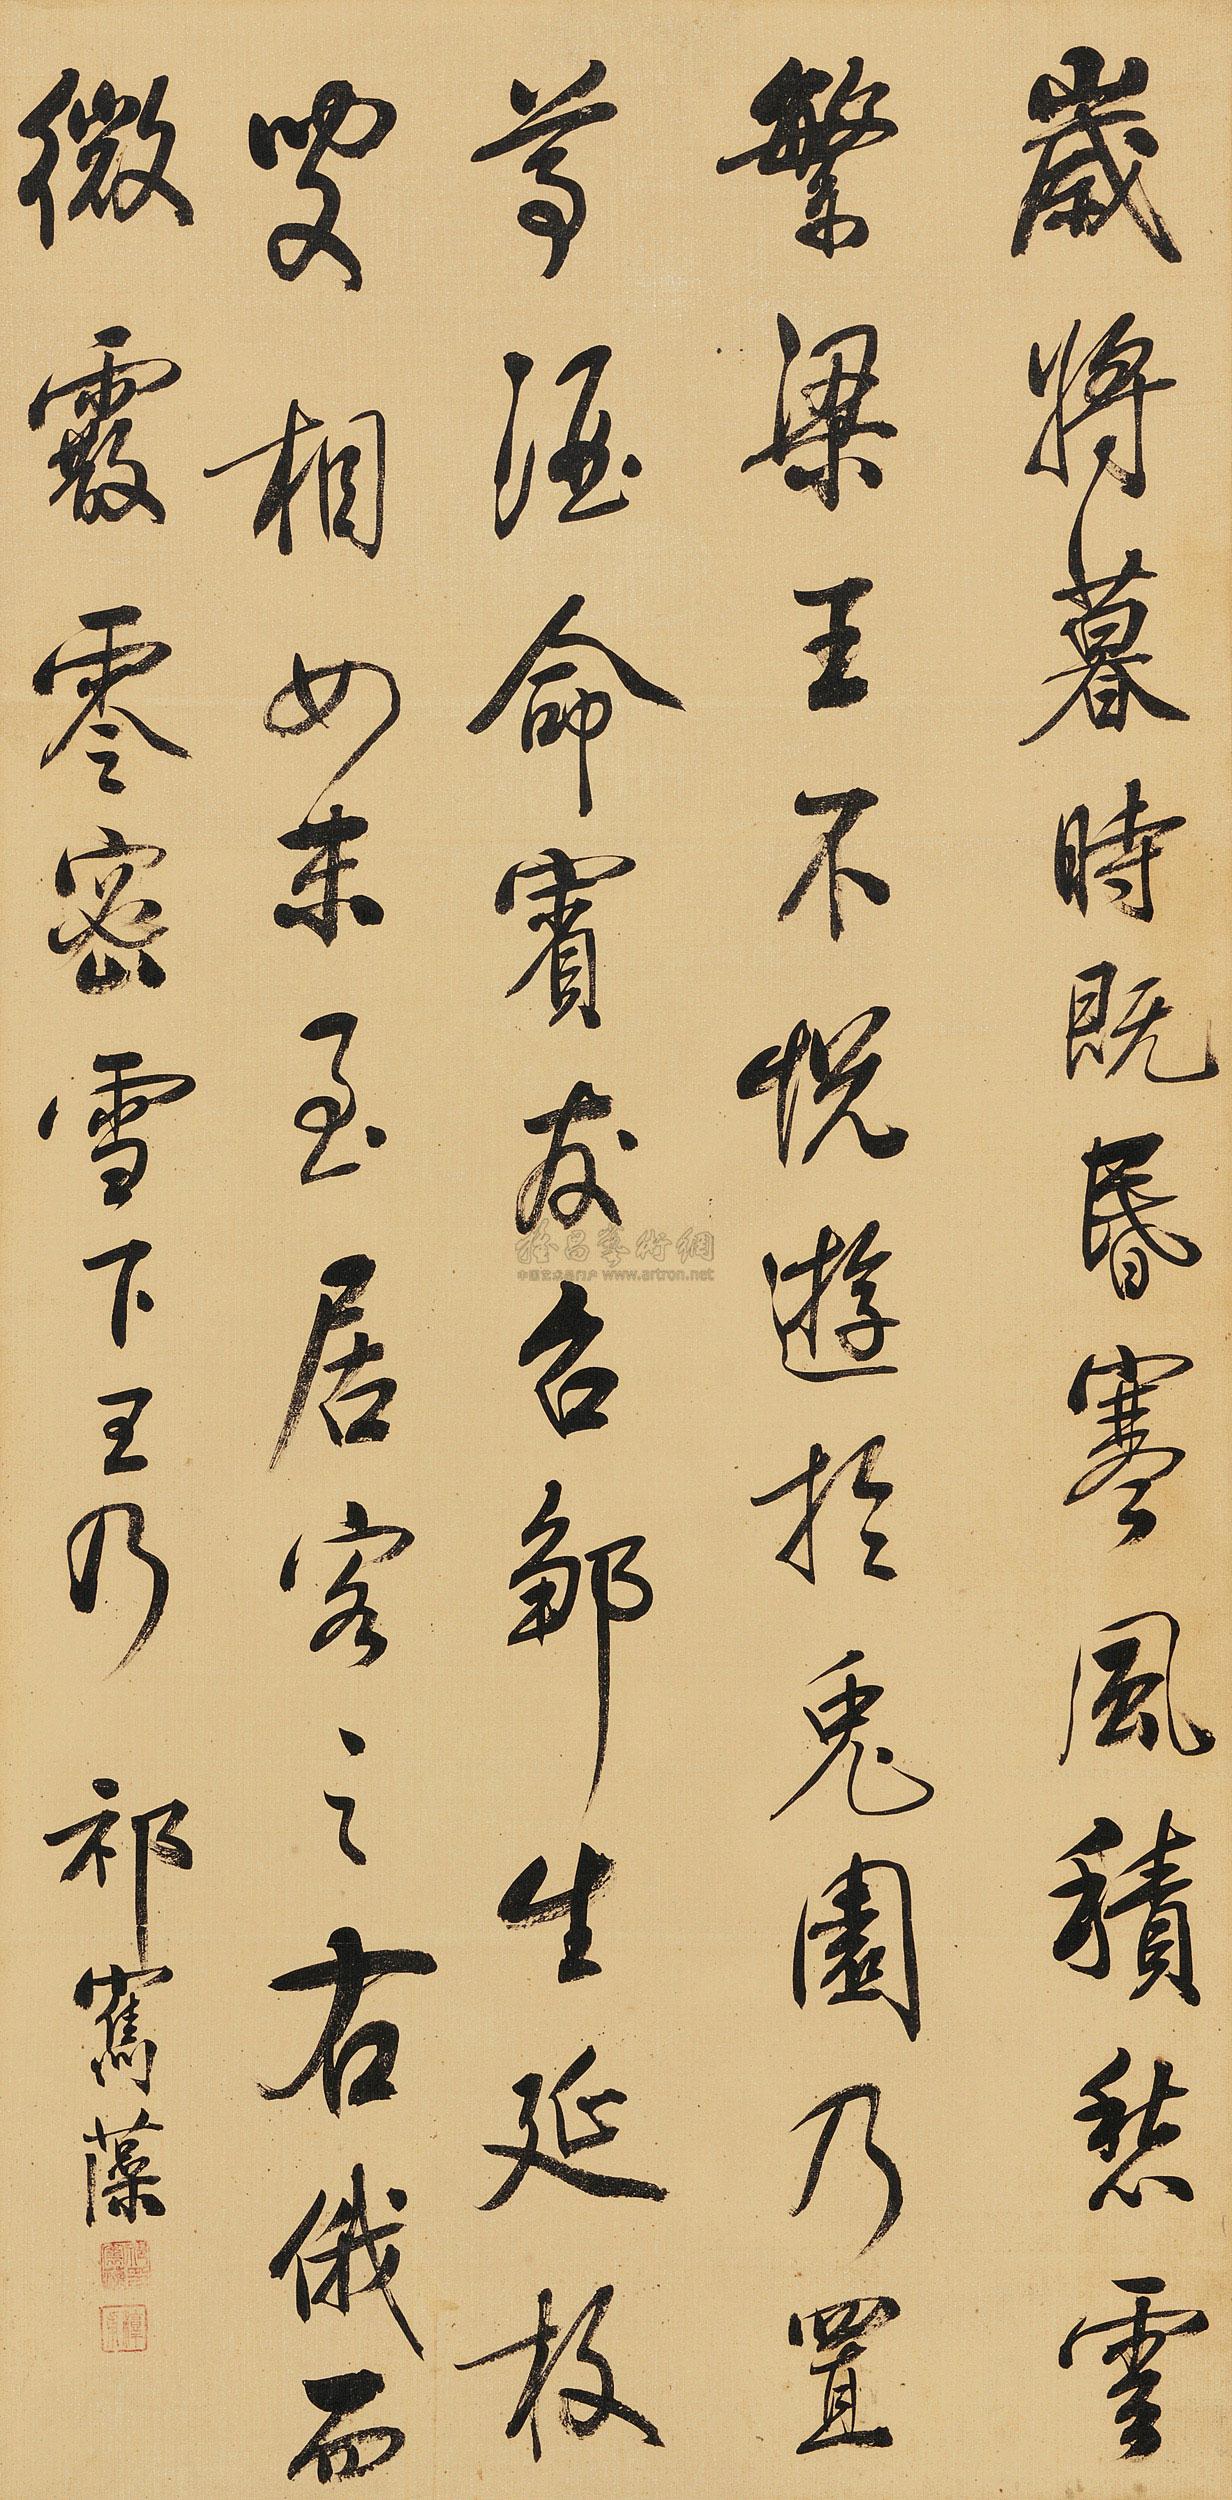 歲將暮時既昏寒風積愁雲
繁梁王不悅遊於兎園乃置
㫖酒命賓友召鄒生延枚
叟相如末至居客之右俄而
微霰零密雪下王乃
祁寯藻
雅昌藝術網
www.artron.net